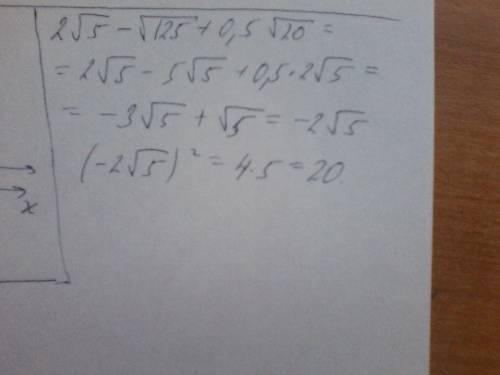 2√5 - √125 + 0,5 √20 =
= 2√5 - 5√5 + 0,5·2√5 =
= -3√5 + √5 = -2√5
(-2√5)² = 4·5 = 20.
x